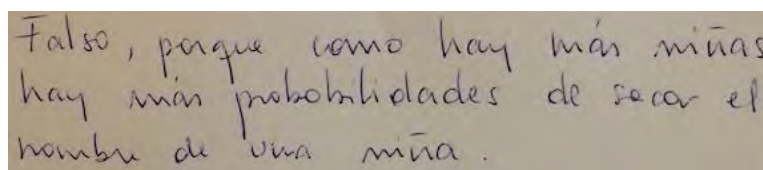 Falso, porque como hay más niñas
hay más probabilidades de sacar el
nombre de una niña.